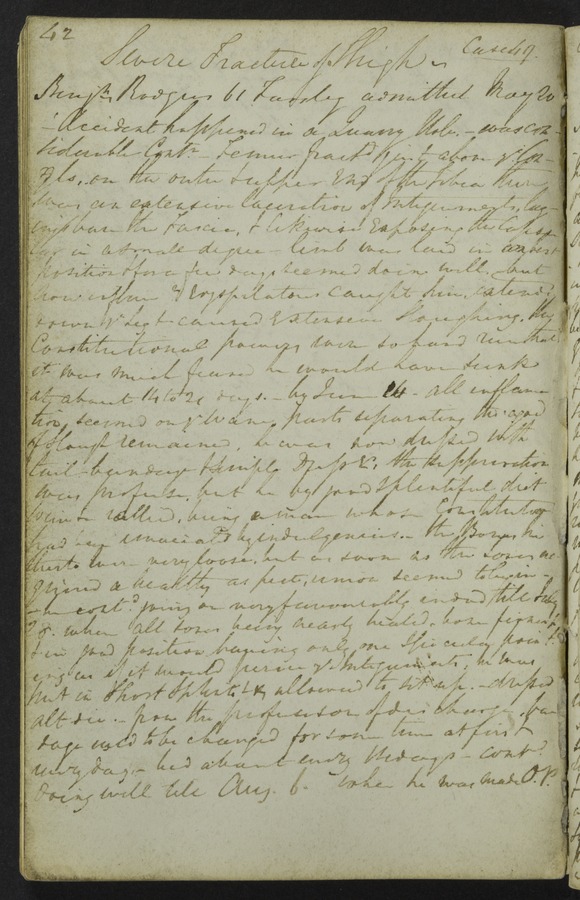 42
Severe Fracture of Thigh Case 49.
Benjn Rodgers 61 Farsley admitted May 20
- Accident happened in a Quarry Hole. - was con-
siderable Contn - Femur fractd just above ye Con-
dyls, on the outer & upper End of the Tibia there
was an extensive laceration of Integuments, lay-
ing bare the Fascia, & likewise Exposing the Capsu-
lar in a small degree - limb was laid in
position & for a few days seemed doing well, but
Erysipelatous caught him, extendg
down ye leg & caused Extensive Sloughing, the
Constitutional powers were so hard run that
it was much feared he would have sunk
at about 14 to 21 days. - by June 14 - all inflama
tion seemed on ye wane, parts separating
of Slough remained, he was now dressed with
tail bandage & simple Dress &c, the suppuration
was profuse, but he by good & plentiful diet
soon rallied, being a man whose Constitution
had by indulgencies. - the Bones hi
therto were very loose, but as soon as the sores ac
quired a healthy aspect, union seemed to begin -
- he contd going on very favourably indeed, till July
28. when all sores being nearly healed, bone firm
& in good position, having only one Spicula point
ing as if it would pierce ye Integuments, he was
put in Short Splints & allowed to sit up. - dressd
alt die. - from the profuseness of discharge, ban
dage used to be changed for some time at first
every day, - bed about every days - contd
doing well till Aug. 6. when he was made O.P.